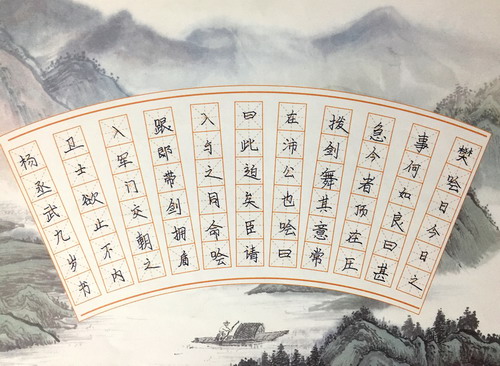 樊哙曰今日之
事何如良曰甚
急今者项在庄
拨剑舞其意常
在沛公也哙曰
曰此迫矣臣请
入与之同命哙
跟即带剑拥盾
入军门交朝之
卫士欲止不内
杨丞武九岁书